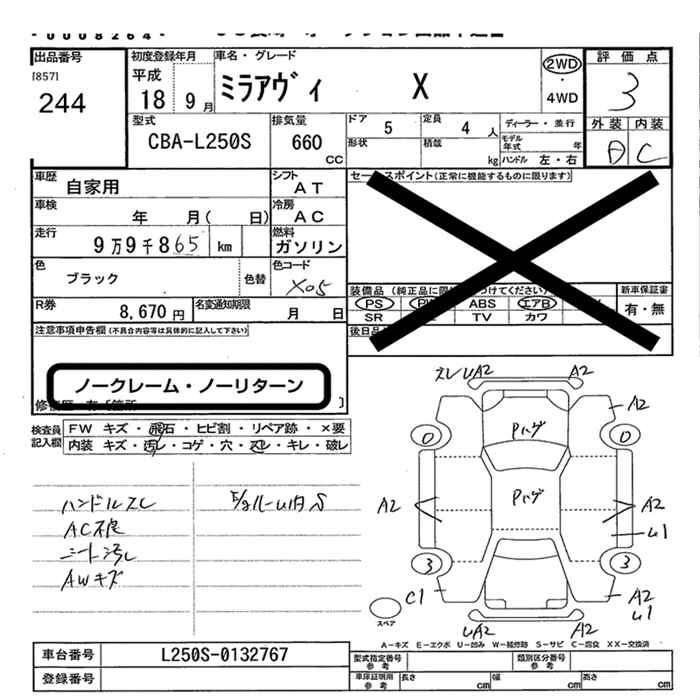 0008264
出品番号
[857]
244
初度登録年月
平成
18 9月
車名・グレード
ミラアヴィ X
2WD
・
4WD
評価点
3
外装 内装
D C
型式
CBA-L250S
排気量
660
CC
ドア 5
定員 4 人
形状
積載 kg
ディーラー・並行
モデル年式 年
ハンドル 左・右
車歴 自家用
シフト AT
車検 年 月( 日)
冷房 AC
走行 9万9千865 km
燃料 ガソリン
色 ブラック 色替
色コード X05
R券 8,670円
名変通知期限 月 日
セールスポイント(正常に機能するものに限ります)
PS ABS エアB
SR TV カワ
新車保証書
有・無
注意事項申告欄(不具合内容等は具体的に記入して下さい)
ノークレーム・ノーリターン
検査員記入欄
FW キズ・飛石・ヒビ割・リペア跡・×要
内装 キズ・汚し・コゲ・穴・スレ・キレ・破レ
ハンドルスレ
AC不良
シート汚レ
AWキズ
スレ UA2 A2
A2
0 0
Pハゲ
Pハゲ
A2 A2
U1
3 3
C1 A2
U1
スペア
UA2 A2
A-キズ E-エクボ U-凹み W-補修跡 S-サビ C-腐食 XX-交換済
車台番号 L250S-0132767
登録番号
型式指定番号 参考
類別区分番号 参考
車庫証明用 参考
長さ cm 幅 cm 高さ cm